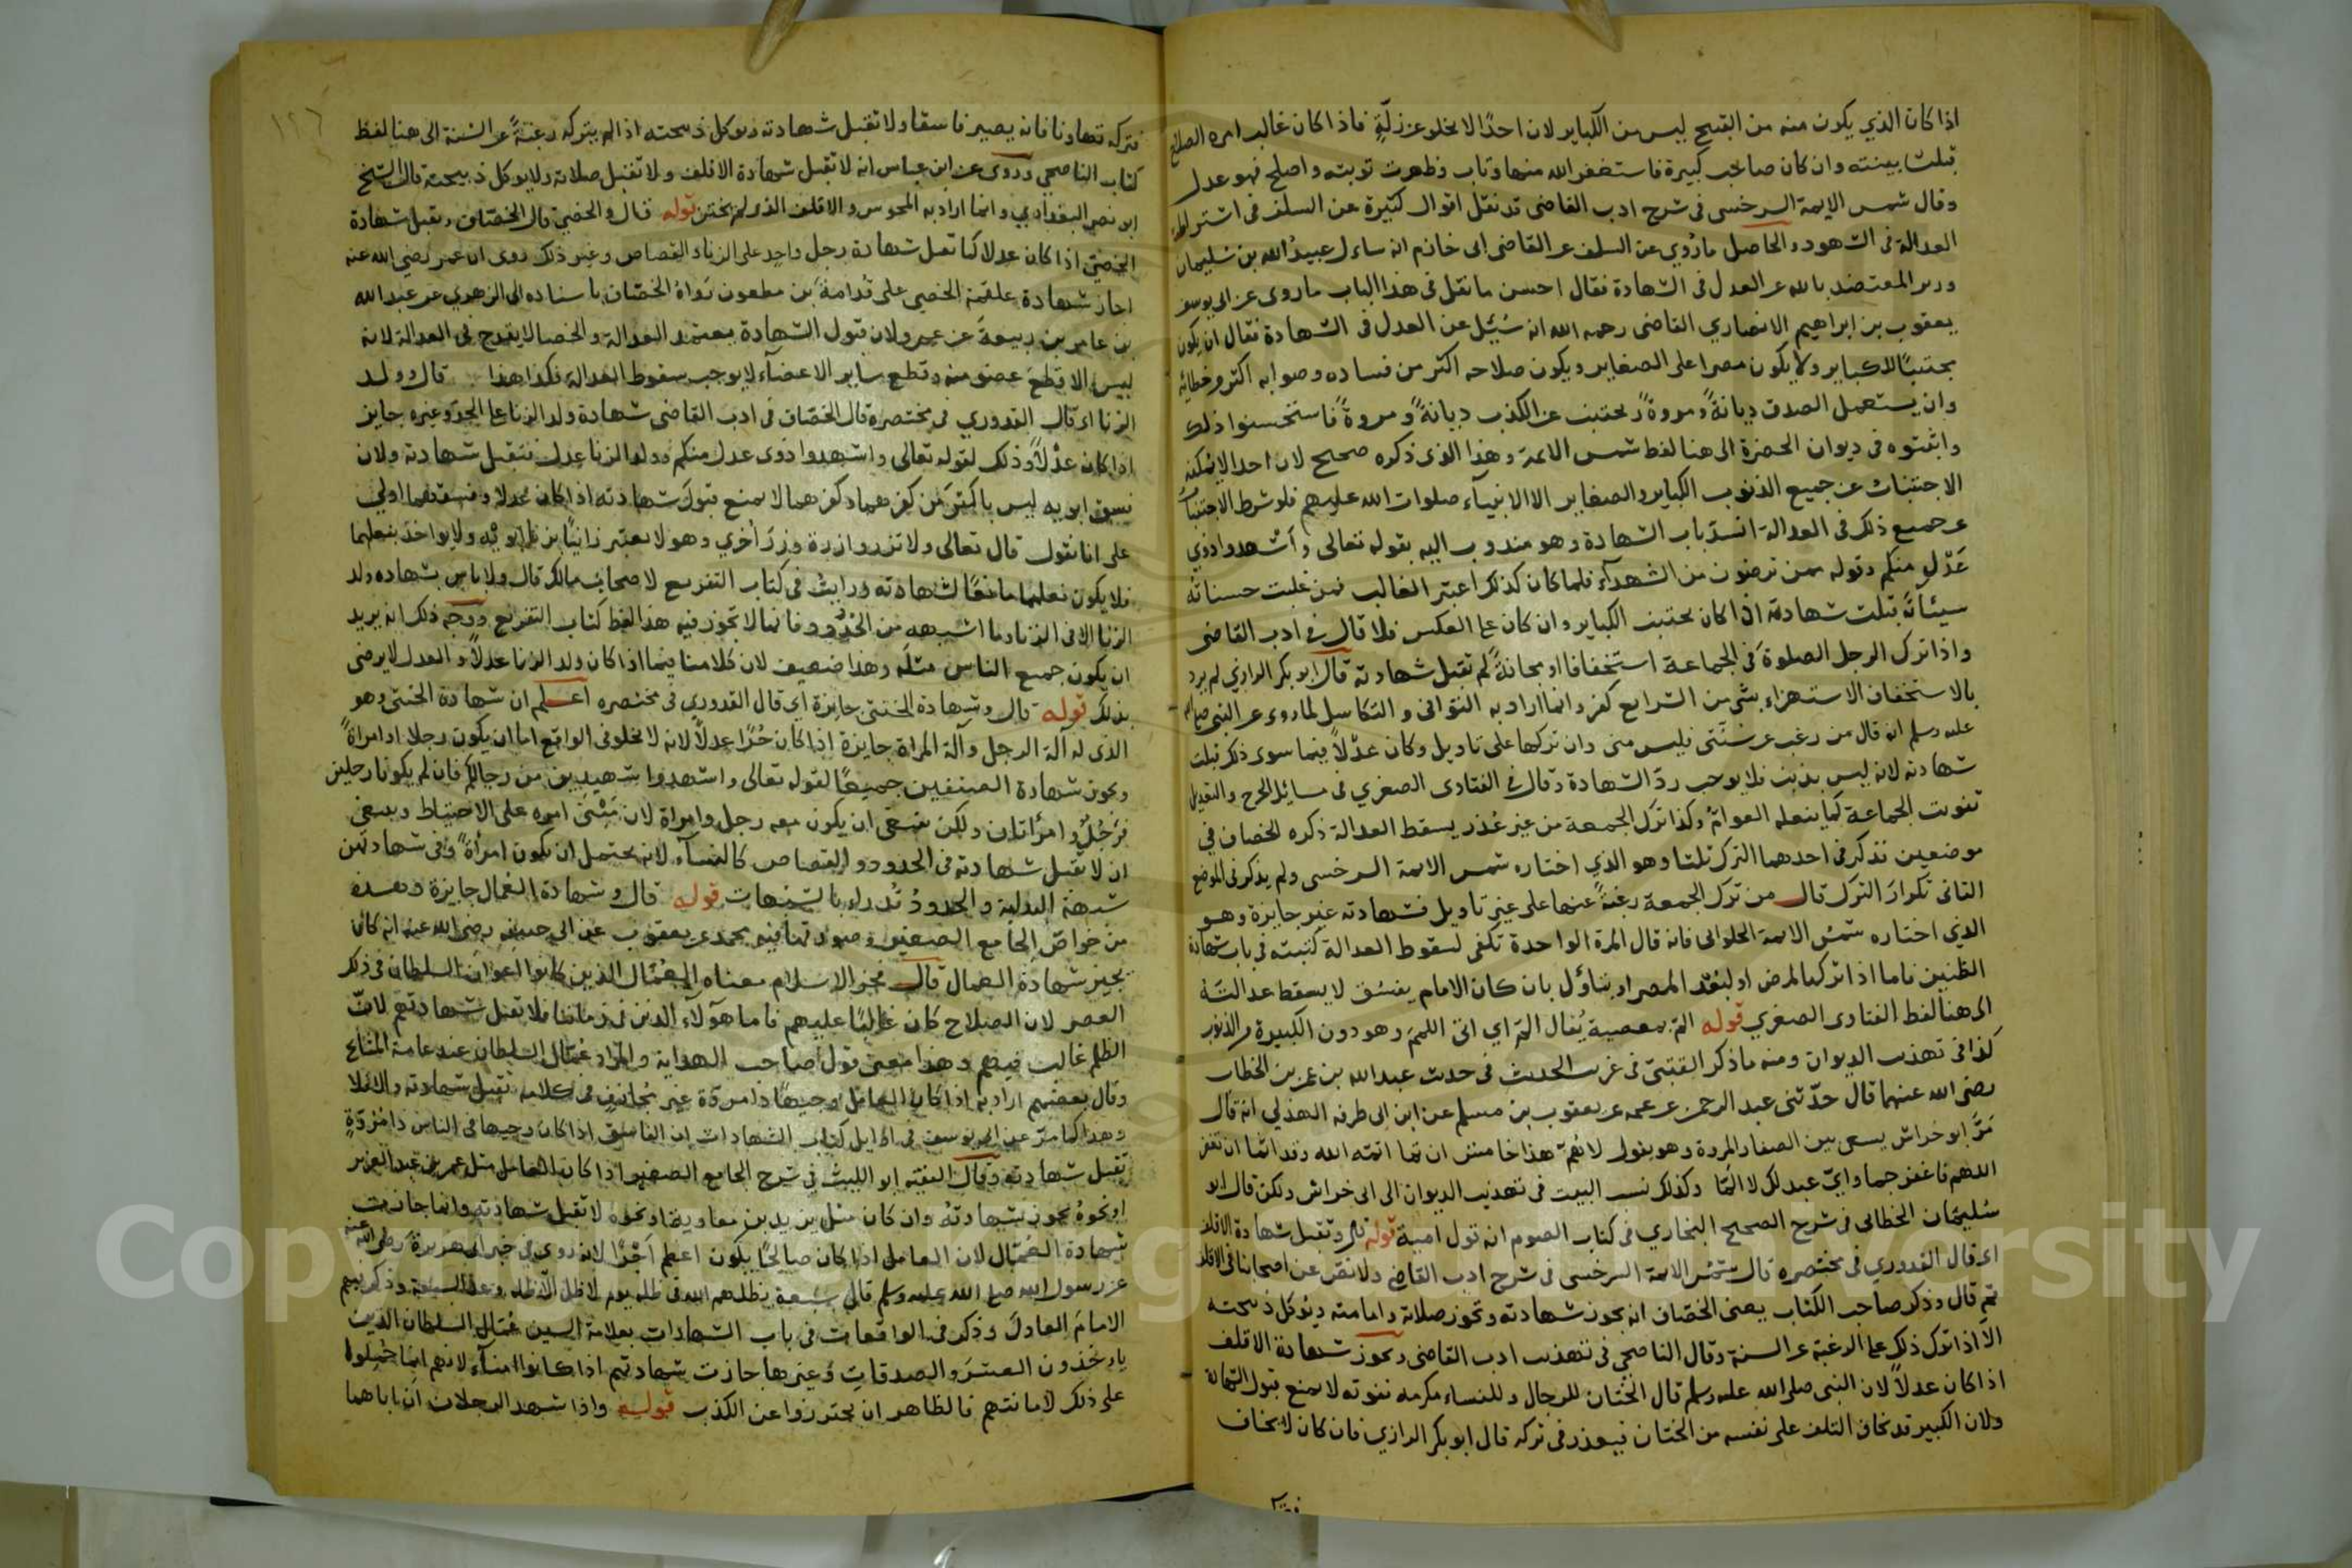 اذا كان الذي يكون منه من القبيح ليس من الكباير لان احدًا لا يخلو عن زلّةٍ فاذا كان غالب امره الصلاح
قبلت بينته وان كان صاحب كبيرة فاستغفر الله منها وتاب وظهرت توبته واصلح فهو عدل
وقال شمس الايمة السرخسي في شرح ادب القاضي قد نقل اقوال كثيرة عن السلف في اشتراط
العدالة في الشهود والحاصل ما رُوي عن السلف عن القاضي ابي خازم انه سأل عبيدُ الله بن سُليمان
وزير المعتضد بالله عن العدل في الشهادة فقال احسن ما نقل في هذا الباب ما روى عن ابي يوسف
يعقوب بن ابراهيم الانصاري القاضي رحمه الله انه سُئِل عن العدل في الشهادة فقال ان يكون
مجتنبًا للكباير ولا يكون مصرا على الصغاير ويكون صلاحه اكثر من فساده وصوابه اكثر من خطائه
وان يستعمل الصدق ديانةً ومروةً ويجتنب عن الكذب ديانةً ومروةً فاستحسنوا ذلك
واثبتوه في ديوان الحضرة الى هنا لفظ شمس الايمة وهذا الذي ذكره صحيح لان احدا لا يمكنه
الاجتناب عن جميع الذنوب الكباير والصغاير الا الانبيآء صلوات الله عليهم فلو شرط الاجتناب
عن جميع ذلك في العدالة انسدّ باب الشهادة وهو مندوب اليه بقوله تعالى وأشهدوا ذوي
عَدْلٍ منكم وقوله ممن ترضون من الشهدآء فلما كان كذلك اعتبر الغالب فمن غلبت حسناته
سيئاتَه قبلت شهادته اذا كان يجتنب الكباير وان كان على العكس فلا قال في ادب القاضي
واذا ترك الرجل الصلوةَ في الجماعة استخفافا او مجانةً لم تقبل شهادته قال ابو بكر الرازي لم يرد
بالاستخفاف الاستهزاء بشي من الشرايع كفر وانما اراد به التواني والتكاسل لما روى عن النبي صلى الله
عليه وسلم انه قال من رغب عن سُنّتي فليس مني وان تركها على تاويل وكان عدْلاً فيما سوى ذلك قبلت
شهادته لانه ليس بذنب فلا يوجب ردّ الشهادة وقال في الفتاوى الصغري في مسائل الجرح والتعديل
تفويت الجماعة كما يفعله العوامُ وكذا ترك الجمعة من غير عُذر يسقط العدالة ذكره الخصاف في
موضعين تذكر في احدهما الترك ثلثا وهو الذي اختاره شمس الايمة السرخسي ولم يذكر في الموضع
الثاني تكرارَ الترك قال من ترك الجمعة رغبةً عنها على غير تاويل فشهادته غير جايزة وهو
الذي اختاره شمسُ الايمة الحلواني فانه قال المرة الواحدة تكفي لسقوط العدالة كتبته في باب شهادة
الظنين فاما اذا تركها لمرض او لبُعْد المصر او بتأوّل بان كان الامام يفسُق لا يسقط عدالتُه
الى هنا لفظ الفتاوى الصغري قوله المّ بمعصية يُقال المّ اي اتى اللممَ وهو دون الكبيرة من الذنوب
كذا في تهذيب الديوان ومنه ما ذكر القتبيّ في غريب الحديث في حديث عبد الله بن عمر بن الخطاب
رضى الله عنهما قال حدّثني عبد الرحمن عن عمه عن يعقوب بن مسلم عن ابن ابي طرفه الهذلي انه قال
مَرَّ ابو خراش يسعى بين الصفا والمروة وهو يقول لاهُمّ هذا خامس ان تما اتمّه الله وقد اتمّا ان تغفر
اللهم فاغفر جما وايّ عبد لك لا المّا وكذلك نسب البيت في تهذيب الديوان الى ابي خراش ولكن قال ابو
سُليمان الخطابي في شرح الصحيح البخاري في كتاب الصوم انه قول امية قوله قال وتقبل شهادة الاقلف
اي قال القدوري في مختصره قال شمسُ الايمة السرخسي في شرح ادب القاضي ولا نصّ عن اصحابنا في الاقلف
ثم قال وذكر صاحب الكتاب يعني الخصّاف انه يجوز شهادته وتجوز صلاته وامامته ويُوكل ذبيحته
الا اذا ترك ذلك على الرغبة عن السنة وقال الناصحي في تهذيب ادب القاضي وتجوز شهادة الاقلف
اذا كان عدلاً لان النبي صلى الله عليه وسلم قال الختان للرجال وللنساء مكرمه ففوته لا يمنع قبول الشهادة
ولان الكبير قد يخاف التلف على نفسه من الختان فيعذر في تركه قال ابو بكر الرازي فان كان لا يخاف
١٢٦
فتركه تهاونا فانه يصير فاسقا ولا تقبل شهادته ويوكل ذبيحته اذا لم يتركه رغبةً عن السنة الى هنا لفظ
كتاب الناصحي وروى عن ابن عباس انه لا تقبل شهادة الاقلف ولا تقبل صلاته ولا يوكل ذبيحته قال الشيخ
ابو نصر البغدادي وانما اراد به المجوس والاقلف الذي لم يختتن قوله قال والخصيّ قال الخصّاف وتقبل شهادة
الخصيّ اذا كان عدلا كما تقبل شهادة رجل واحد على الزناء والقصاص وغير ذلك روى ان عمر رضي الله عنه
اجاز شهادة علقمة الخصي على قُدامةَ بن مظعون رَواهُ الخصّاف باسناده الى الزهري عن عبد الله
بن عامر بن ربيعةَ عن عمر ولان قبول الشهادة يعتمد العدالة والخصا لا يقدح في العدالة لانه
ليس الا قطعَ عضو منه وقطع ساير الاعضآء لا يوجب سقوط العدالة فكذا هذا قال وولد
الزنا اي قال القدوري في مختصره قال الخصّاف في ادب القاضي شهادة ولد الزنا على الحدّ وغيره جايز
اذا كان عدْلاً وذلك لقوله تعالى واشهدوا ذوى عدل منكم وولد الزنا عدل فتقبل شهادته ولان
فسق ابويه ليس باكثرَ من كفرهما وكفرهما لا يمنع قبولَ شهادته اذا كان عدلا وفسقهما اولى
على انا نقول قال تعالى ولا تزر وازرة وِزرَ أُخري وهو لا يعتبر زانيًا بزنا ابويْه ولا يواخذ بفعلهما
فلا يكون فعلهما مانعًا لشهادته ورايتُ في كتاب التفريع لاصحاب مالك قال ولا باس بشهاده ولد
الزنا الا في الزنا وما اشبهه من الحُدُود فانها لا تجوز فيه هذا لفظ كتاب التفريع ووجه ذلك انه يريد
ان يكون جميع الناس مثلَه وهذا ضعيف لان كلامنا فيما اذا كان ولد الزنا عدلاً والعدل لا يرضى
بذلك قوله قال وشهادة الخنثى جايزة اي قال القدوري في مختصره اعلم ان شهادة الخنثى وهو
الذي له آلة الرجل وآلة المراة جايزة اذا كان حُرًا عدلاً لانه لا يخلو في الواقع اما ان يكون رجلا او امراةً
ويجوز شهادة الصنفين جميعًا لقوله تعالى واستشهدوا شهيدين من رجالكم فان لم يكونا رجلين
فرَجُلٌ وامرأتان ولكن ينبغي ان يكون معه رجل وامراة لان مَبْنَى امره على الاحتياط وينبغي
ان لا تقبل شهادته في الحدود والقصاص كالنسآء لانه يحتمل ان يكون امرأةً وفي شهادتهن
شبهة البدلية والحدودُ تُدراء بالشبهات قوله قال وشهادة العمال جايزة وهذه
من خواصّ الجامع الصغير وصورتها فيه محمد عن يعقوب عن ابي حنيفه رضى الله عنه انه كان
يجيز شهادة العمال قال فخر الاسلام معناه العُمّال الذين كانوا اعوانَ السلطان في ذلك
العصر لان الصلاح كان غالبًا عليهم فاما هؤلآء الذين في زماننا فلا تقبل شهادتهم لانّ
الظلم غالب فيهم وهذا معنى قول صاحب الهداية والمراد عُمّال السلطان عند عامة المشايخ
وقال بعضهم اراد به اذا كان العامل وجيهًا ذا مروّة غير مُجازفٍ في كلامه تقبل شهادته والا فلا
وهذا كما مرّ عن ابي يوسف في اوايل كتاب الشهادات ان الفاسق اذا كان وجيها في الناس ذا مُروّةٍ
تقبل شهادته وقال الفقيه ابو الليث في شرح الجامع الصغير اذا كان العامل مثل عمر بن عبد العزيز
او نحوهُ يجوز شهادتهُ وان كان مثل يزيد بن معاوية او نحوه لا تقبل شهادته وانما جازت
شهادة العُمّال لان العامل اذا كان صالحًا يكون اعظم أجْرًا لانه روى في خبر ابي هريرةَ رضى الله عنه
عن رسول الله صلى الله عليه وسلم قال سبعة يظلهم الله في ظله يوم لا ظل الا ظله وعدّ السبعة وذكر فيهم
الامامَ العادلَ وذكر في الواقعات في باب الشهادات بعلامة السين عُمّال السلطان الذين
ياوخذون العشرَ والصدقاتِ وغيرها جازت شهادتهم اذا كانوا امنآء لانهم انما جُعِلوا
على ذلك لامانتهم فالظاهر ان يحترزوا عن الكذب قوله واذا شهد الرجلان أن اباهما